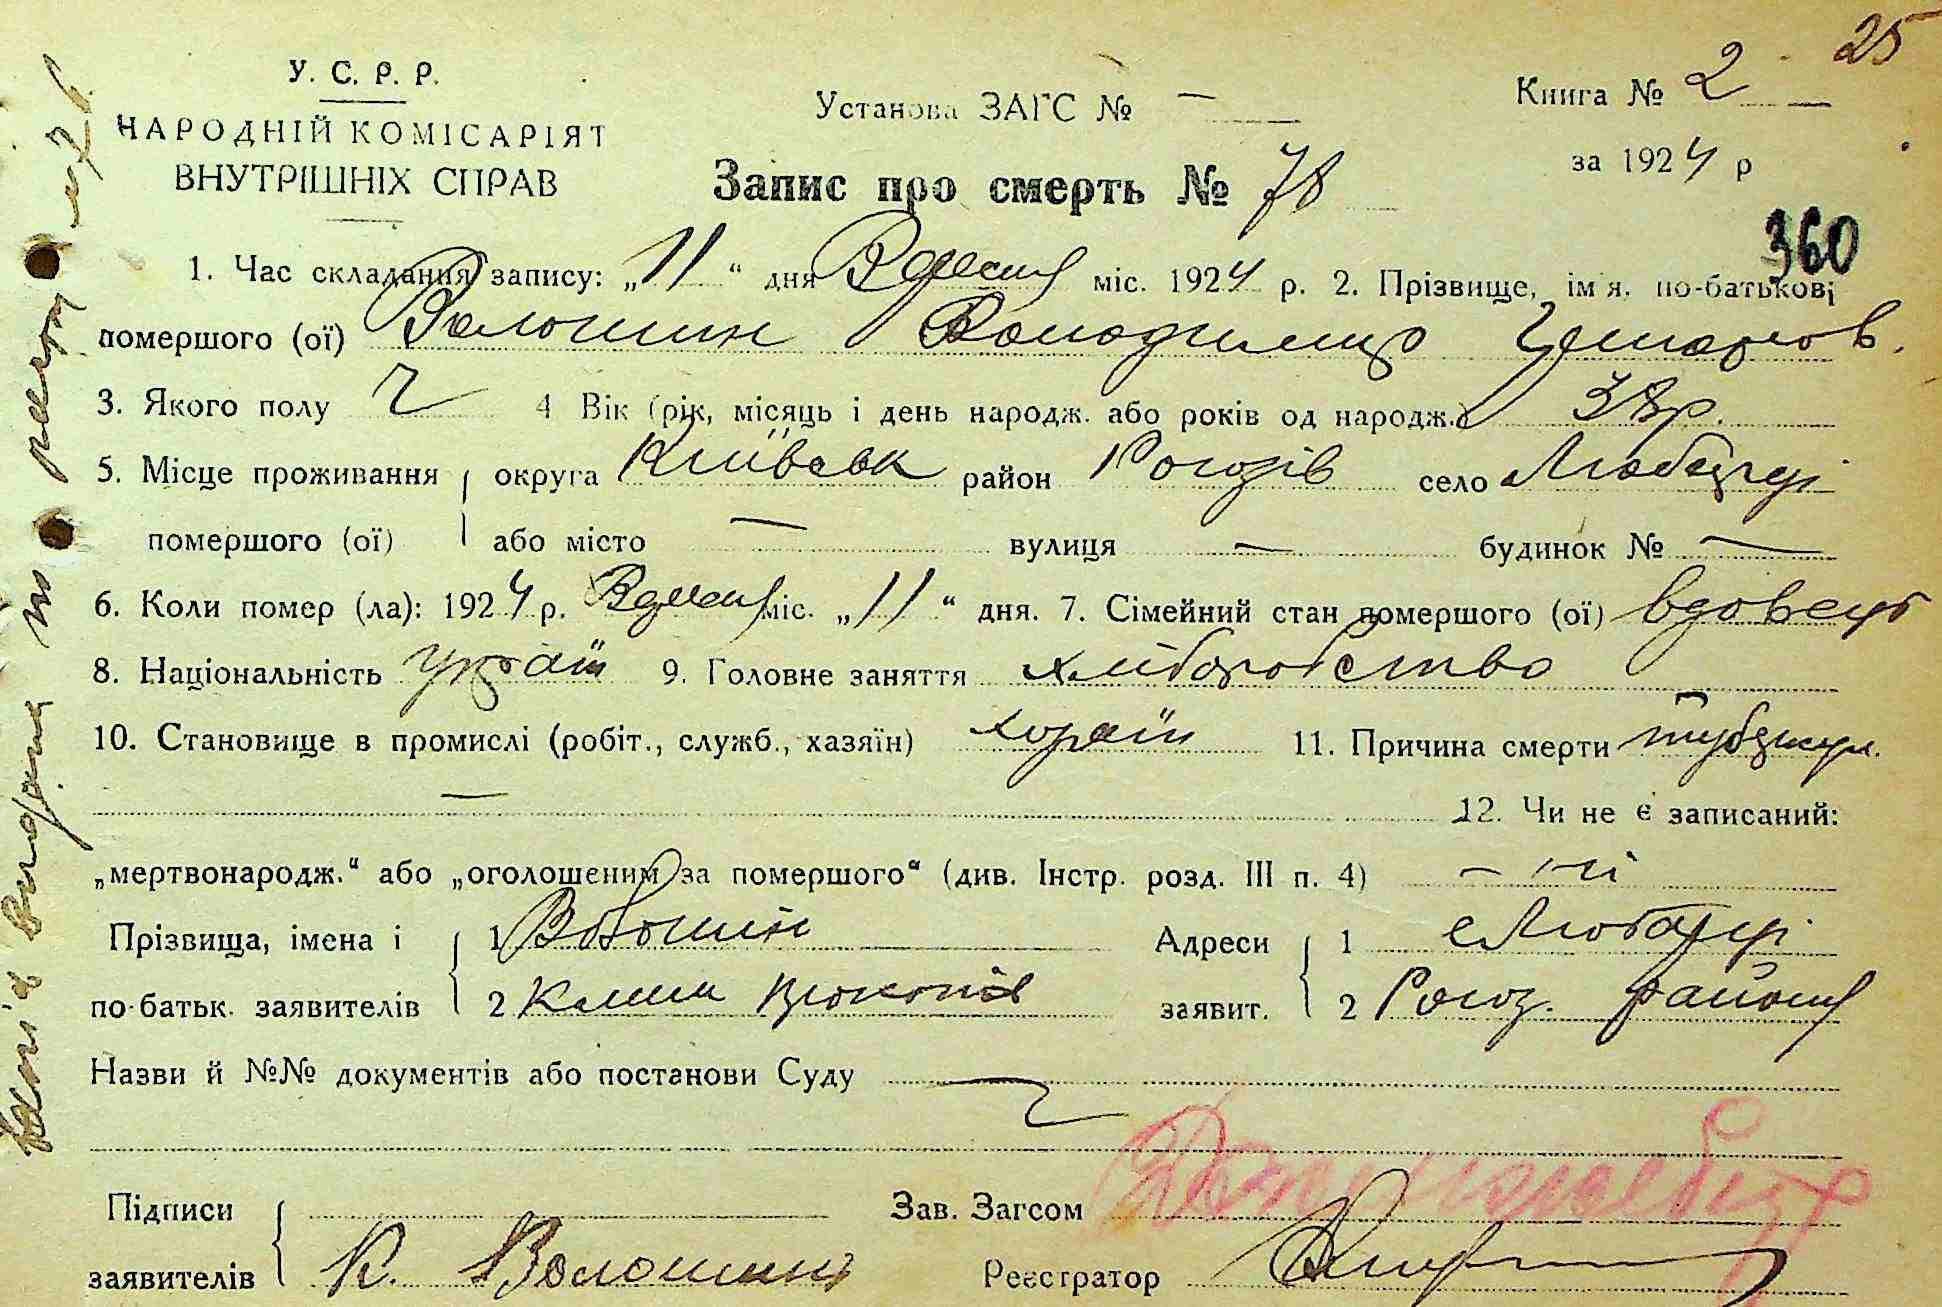 25
У. С. Р. Р.
НАРОДНІЙ КОМІСАРІЯТ
ВНУТРІШНІХ СПРАВ
Установа ЗАГС № —
Книга № 2 —
за 1924 р
Запис про смерть № 78
360
1. Час складання запису: „11“ дня Вдесну міс. 1924 р. 2. Прізвище, ім'я, по-батькові
помершого (ої) Волошин Володимир
3. Якого полу Ч 4 Вік (рік, місяць і день народж. або років од народж.) 38 р.
5. Місце проживання округа Київськ район Рогозів село Любарці
помершого (ої) або місто — вулиця — будинок № —
6. Коли помер (ла): 1924 р. міс. „11“ дня. 7. Сімейний стан помершого (ої) вдовець
8. Національність україн 9. Головне заняття хліборобство
10. Становище в промислі (робіт., служб., хазяїн) хазяїн 11. Причина смерти туберкул.
— 12. Чи не є записаний:
„мертвонародж.“ або „оголошеним за помершого“ (див. Інстр. розд. III п. 4) — ні
Прізвища, імена і 1 Волошин Адреси 1 с Любарці
по-батьк. заявителів 2 Клим Прокопів заявит. 2 Рогоз. району
Назви й №№ документів або постанови Суду —
Підписи Зав. Загсом
заявителів К. Волошин Реєстратор